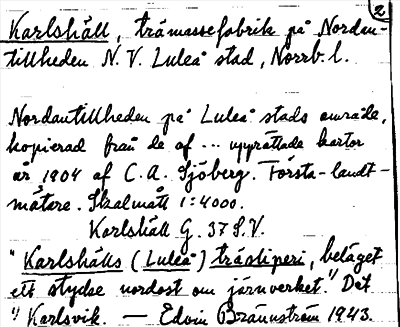 2
Karlshäll, trämassefabrik på Nordan-
tillheden N.V. Luleå stad, Norrb. l.
Nordantillheden på Luleå stads område,
kopierad från de af ... upprättade kartor
år 1904 af C. A. Sjöberg. Första-landt-
mätare. Skalmått 1:4000.
Karlshäll G. 37 S.V.
"Karlshälls (Luleå) träsliperi, beläget
ett stycke nordost om järnverket." Det.
" Karlsvik. — Edvin Brännström 1943.